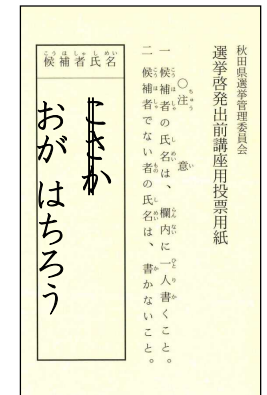 秋田県選挙管理委員会
選挙啓発出前講座用投票用紙
○注意
一 候補者の氏名は、欄内に一人書くこと。
二 候補者でない者の氏名は、書かないこと。
候補者氏名
こさか
おが はちろう